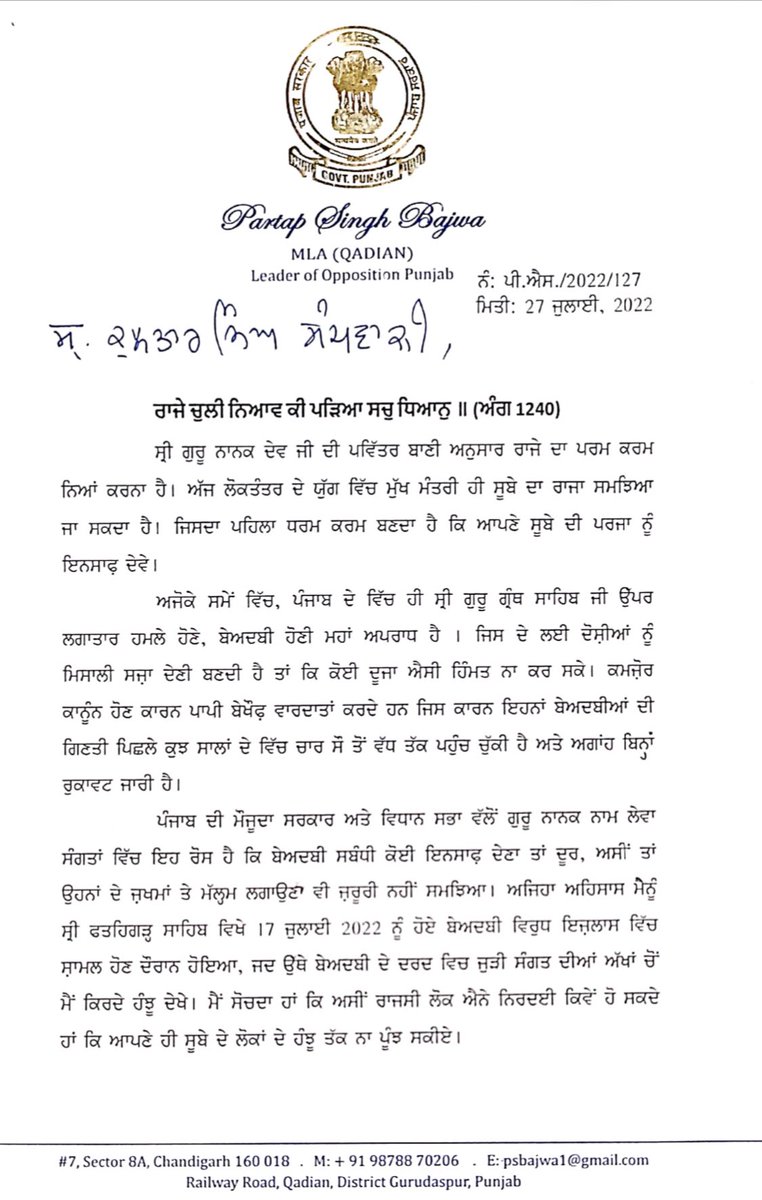 ਪੰਜਾਬ ਸਰਕਾਰ
सत्यमेव जयते
GOVT. PUNJAB
Partap Singh Bajwa
MLA (QADIAN)
Leader of Opposition Punjab
ਨੰ: ਪੀ.ਐਸ./2022/127
ਮਿਤੀ: 27 ਜੁਲਾਈ, 2022
ਸ੍ਰ. ਕੁਲਤਾਰ ਸਿੰਘ ਸੰਧਵਾਂ ਜੀ,
ਰਾਜੇ ਚੁਲੀ ਨਿਆਵ ਕੀ ਪੜਿਆ ਸਚੁ ਧਿਆਨੁ ॥ (ਅੰਗ 1240)
ਸ੍ਰੀ ਗੁਰੂ ਨਾਨਕ ਦੇਵ ਜੀ ਦੀ ਪਵਿੱਤਰ ਬਾਣੀ ਅਨੁਸਾਰ ਰਾਜੇ ਦਾ ਪਰਮ ਕਰਮ
ਨਿਆਂ ਕਰਨਾ ਹੈ। ਅੱਜ ਲੋਕਤੰਤਰ ਦੇ ਯੁੱਗ ਵਿੱਚ ਮੁੱਖ ਮੰਤਰੀ ਹੀ ਸੂਬੇ ਦਾ ਰਾਜਾ ਸਮਝਿਆ
ਜਾ ਸਕਦਾ ਹੈ। ਜਿਸਦਾ ਪਹਿਲਾ ਧਰਮ ਕਰਮ ਬਣਦਾ ਹੈ ਕਿ ਆਪਣੇ ਸੂਬੇ ਦੀ ਪਰਜਾ ਨੂੰ
ਇਨਸਾਫ਼ ਦੇਵੇ।
ਅਜੋਕੇ ਸਮੇਂ ਵਿੱਚ, ਪੰਜਾਬ ਦੇ ਵਿੱਚ ਹੀ ਸ੍ਰੀ ਗੁਰੂ ਗ੍ਰੰਥ ਸਾਹਿਬ ਜੀ ਉੱਪਰ
ਲਗਾਤਾਰ ਹਮਲੇ ਹੋਣੇ, ਬੇਅਦਬੀ ਹੋਣੀ ਮਹਾਂ ਅਪਰਾਧ ਹੈ । ਜਿਸ ਦੇ ਲਈ ਦੋਸ਼ੀਆਂ ਨੂੰ
ਮਿਸਾਲੀ ਸਜ਼ਾ ਦੇਣੀ ਬਣਦੀ ਹੈ ਤਾਂ ਕਿ ਕੋਈ ਦੂਜਾ ਐਸੀ ਹਿੰਮਤ ਨਾ ਕਰ ਸਕੇ। ਕਮਜ਼ੋਰ
ਕਾਨੂੰਨ ਹੋਣ ਕਾਰਨ ਪਾਪੀ ਬੇਖੌਫ਼ ਵਾਰਦਾਤਾਂ ਕਰਦੇ ਹਨ ਜਿਸ ਕਾਰਨ ਇਹਨਾਂ ਬੇਅਦਬੀਆਂ ਦੀ
ਗਿਣਤੀ ਪਿਛਲੇ ਕੁਝ ਸਾਲਾਂ ਦੇ ਵਿੱਚ ਚਾਰ ਸੌ ਤੋਂ ਵੱਧ ਤੱਕ ਪਹੁੰਚ ਚੁੱਕੀ ਹੈ ਅਤੇ ਅਗਾਂਹ ਬਿਨ੍ਹਾਂ
ਰੁਕਾਵਟ ਜਾਰੀ ਹੈ।
ਪੰਜਾਬ ਦੀ ਮੌਜੂਦਾ ਸਰਕਾਰ ਅਤੇ ਵਿਧਾਨ ਸਭਾ ਵੱਲੋਂ ਗੁਰੂ ਨਾਨਕ ਨਾਮ ਲੇਵਾ
ਸੰਗਤਾਂ ਵਿੱਚ ਇਹ ਰੋਸ ਹੈ ਕਿ ਬੇਅਦਬੀ ਸਬੰਧੀ ਕੋਈ ਇਨਸਾਫ ਦੇਣਾ ਤਾਂ ਦੂਰ, ਅਸੀਂ ਤਾਂ
ਉਹਨਾਂ ਦੇ ਜ਼ਖਮਾਂ ਤੇ ਮੱਲ੍ਹਮ ਲਗਾਉਣਾ ਵੀ ਜ਼ਰੂਰੀ ਨਹੀਂ ਸਮਝਿਆ। ਅਜਿਹਾ ਅਹਿਸਾਸ ਮੈਨੂੰ
ਸ੍ਰੀ ਫਤਹਿਗੜ੍ਹ ਸਾਹਿਬ ਵਿਖੇ 17 ਜੁਲਾਈ 2022 ਨੂੰ ਹੋਏ ਬੇਅਦਬੀ ਵਿਰੁਧ ਇਜ਼ਲਾਸ ਵਿੱਚ
ਸ਼ਾਮਲ ਹੋਣ ਦੌਰਾਨ ਹੋਇਆ, ਜਦ ਉਥੇ ਬੇਅਦਬੀ ਦੇ ਦਰਦ ਵਿਚ ਜੁੜੀ ਸੰਗਤ ਦੀਆਂ ਅੱਖਾਂ ਚੋਂ
ਮੈਂ ਕਿਰਦੇ ਹੰਝੂ ਦੇਖੇ। ਮੈਂ ਸੋਚਦਾ ਹਾਂ ਕਿ ਅਸੀਂ ਰਾਜਸੀ ਲੋਕ ਐਨੇ ਨਿਰਦਈ ਕਿਵੇਂ ਹੋ ਸਕਦੇ
ਹਾਂ ਕਿ ਆਪਣੇ ਹੀ ਸੂਬੇ ਦੇ ਲੋਕਾਂ ਦੇ ਹੰਝੂ ਤੱਕ ਨਾ ਪੂੰਝ ਸਕੀਏ।
#7, Sector 8A, Chandigarh 160 018 . M: + 91 98788 70206 . E: psbajwa1@gmail.com
Railway Road, Qadian, District Gurudaspur, Punjab